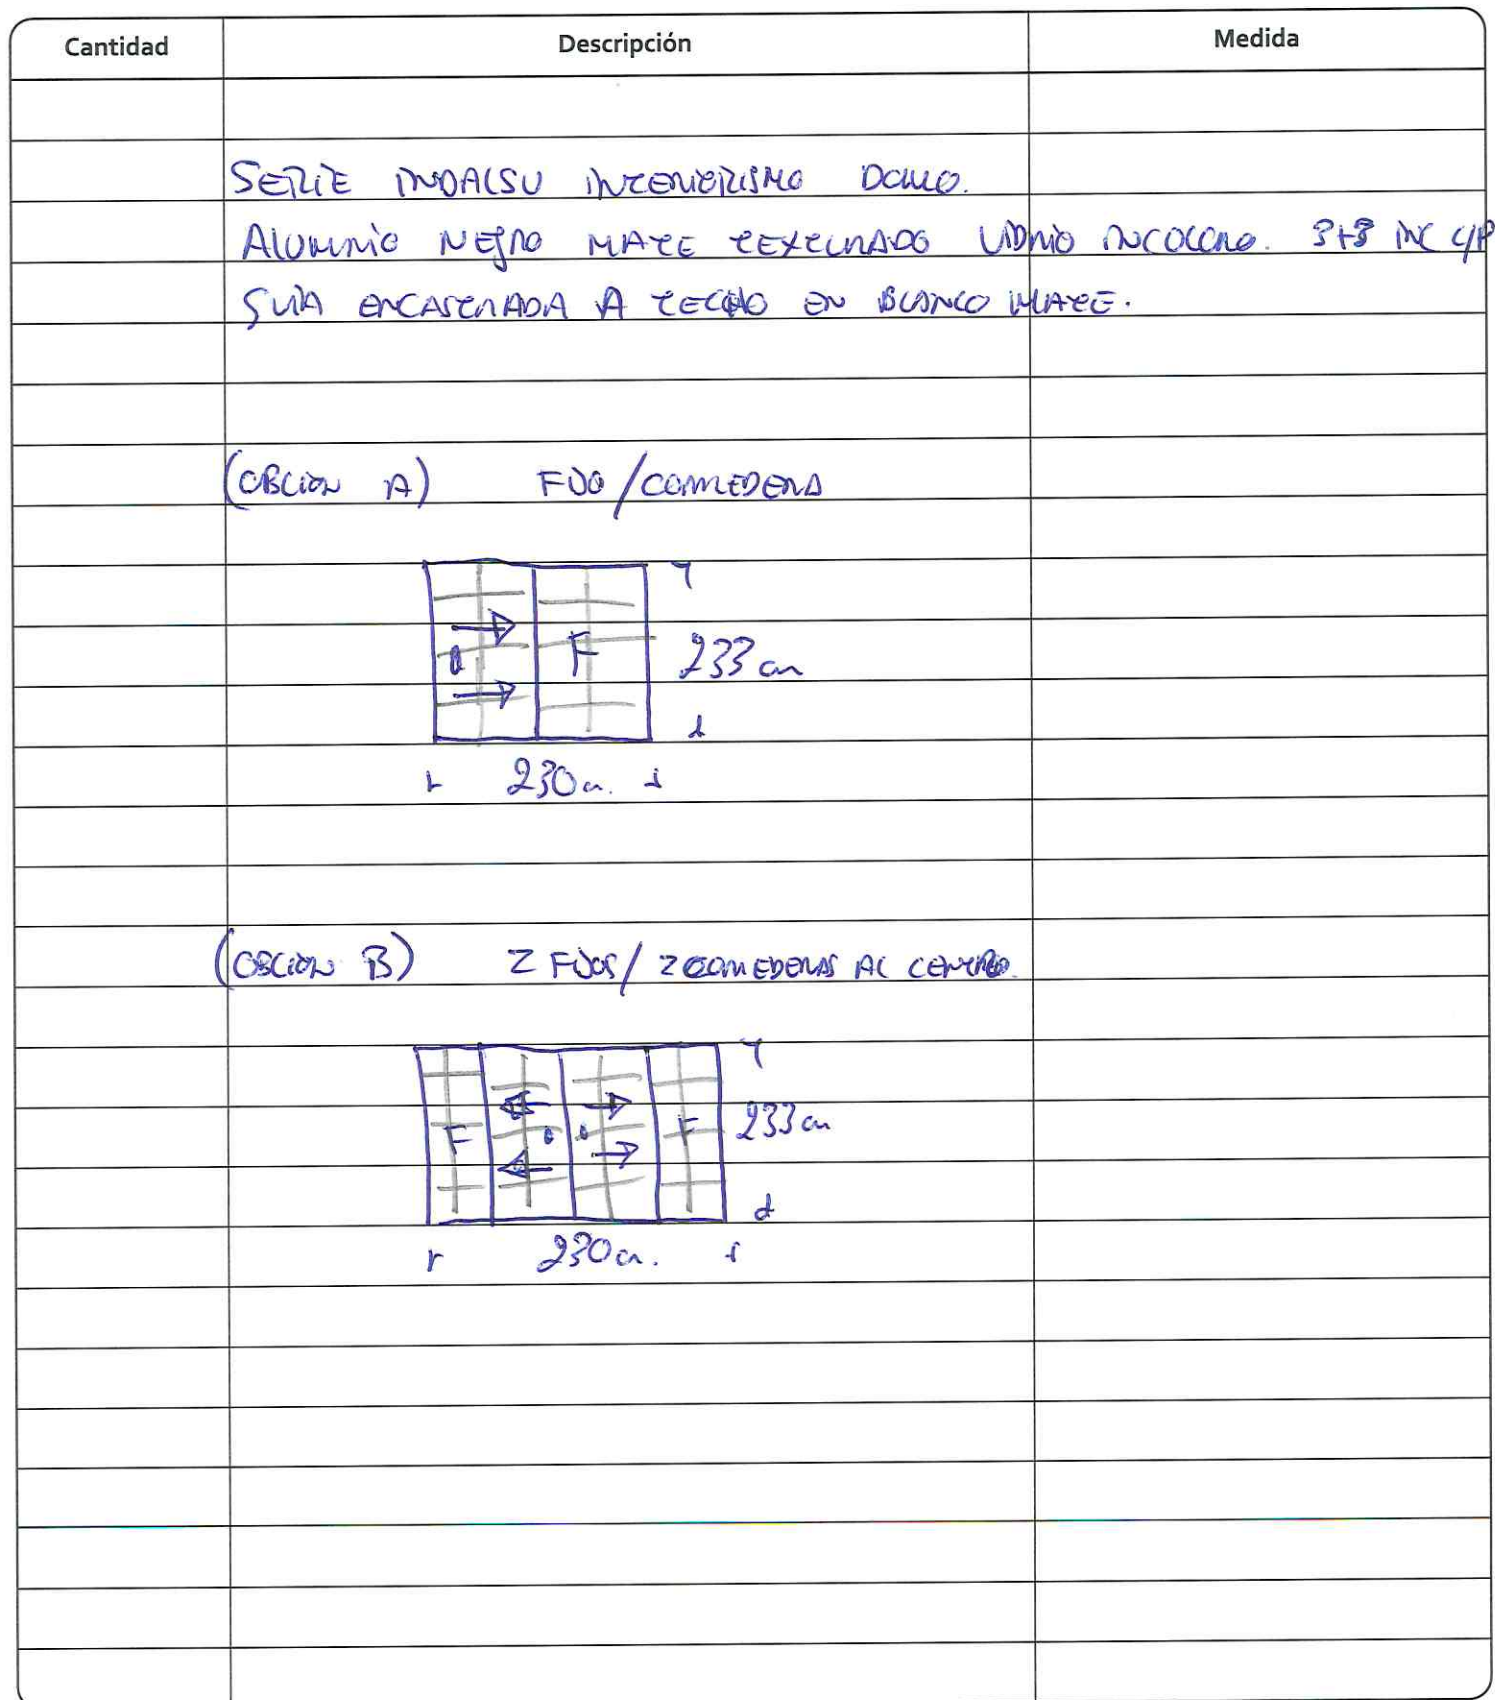 Cantidad Descripción Medida
SERIE INDALSU INTERIORISMO DOMO.
ALUMINIO NEGRO MATE TEXTURADO VIDRIO INCOLORO. 3+3 INC C/P
GUIA ENCASTRADA A TECHO EN BLANCO MATE.
(OBCION A) FIJO/CORREDERA
F
233 cm
230 cm.
(OBCION B) 2 FIJOS/2 CORREDERAS AL CENTRO
F F
233 cm
230 cm.